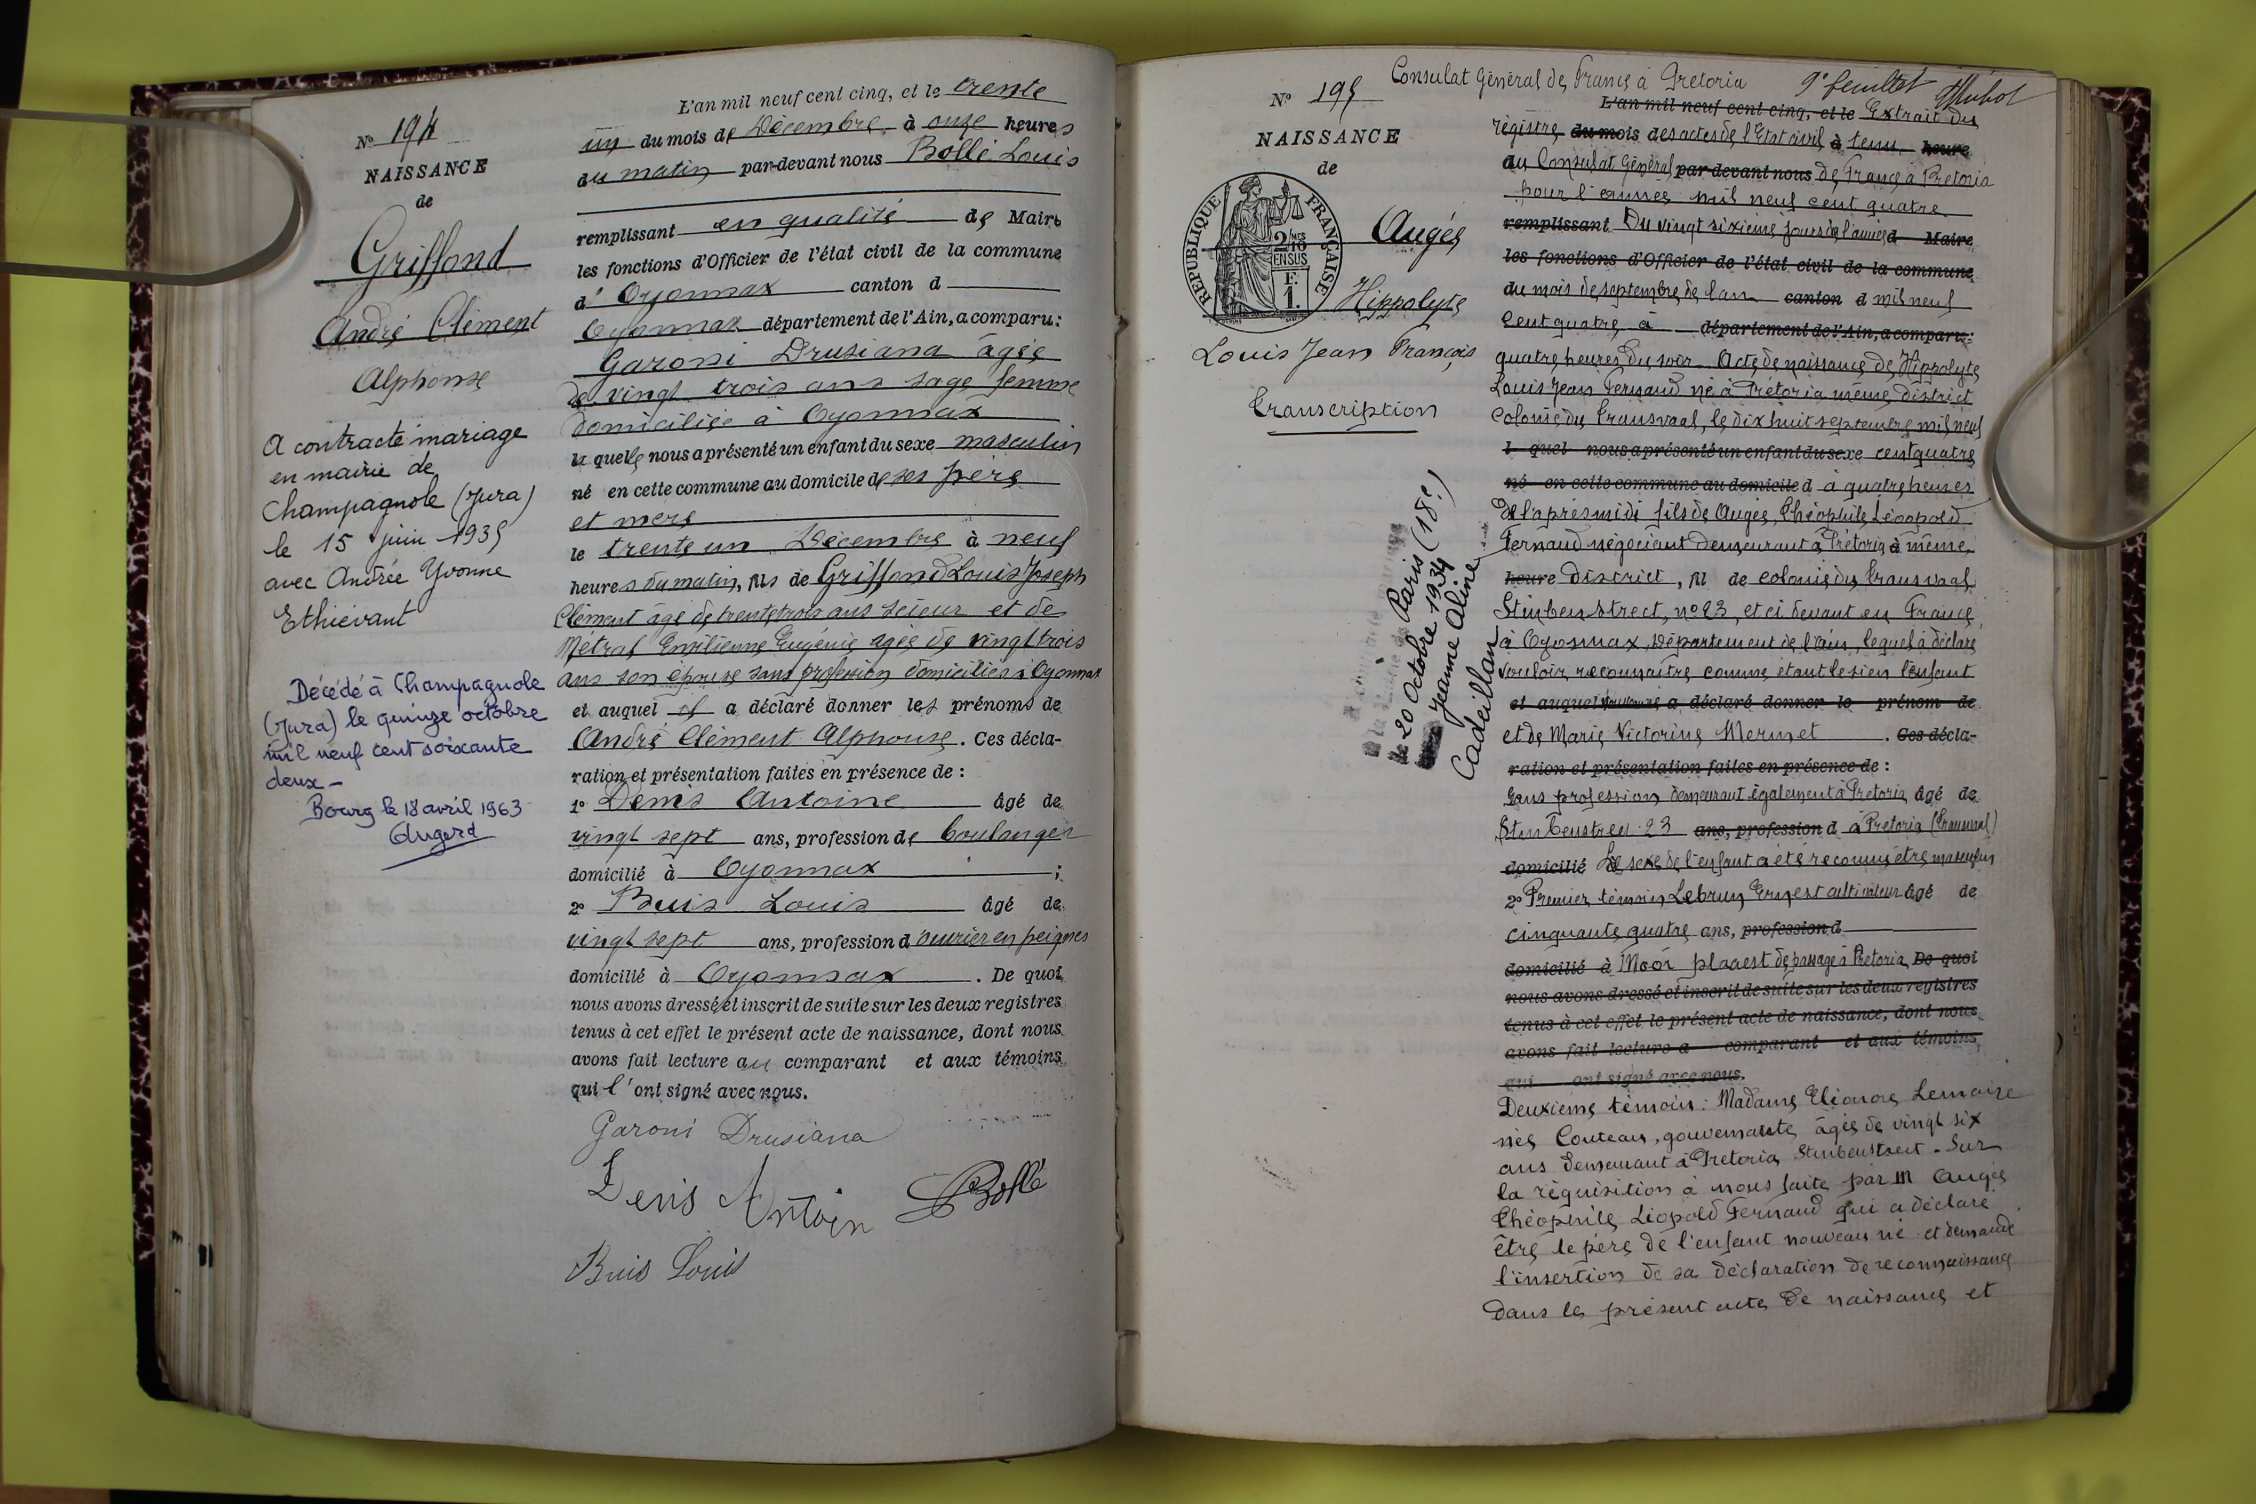 L'an mil neuf cent cinq, et le trente
un du mois de Décembre, à onze heures
du matin par-devant nous Bollé Louis
remplissant en qualité de Maire
les fonctions d'Officier de l'état civil de la commune
d' Oyonnax canton d
Oyonnax département de l'Ain, a comparu :
Garoni Drusiana âgée
de vingt trois ans sage femme
domiciliée à Oyonnax
la quelle nous a présenté un enfant du sexe masculin
né en cette commune au domicile de ses père
et mère
le trente un Décembre à neuf
heures du matin, fils de Griffond Louis Joseph
Clément âgé de trente trois ans scieur et de
Métral Emilienne Eugénie agée de vingt trois
ans son épouse sans profession domiciliés à Oyonnax
et auquel il a déclaré donner les prénoms de
André Clément Alphonse. Ces décla-
ration et présentation faites en présence de :
1º Denis Antoine âgé de
vingt sept ans, profession de boulanger
domicilié à Oyonnax ;
2º Buis Louis âgé de
vingt sept ans, profession d'ouvrier en peignes
domicilié à Oyonnax. De quoi
nous avons dressé et inscrit de suite sur les deux registres
tenus à cet effet le présent acte de naissance, dont nous
avons fait lecture au comparant et aux témoins
qui l'ont signé avec nous.
Garoni Drusiana
Denis Antoin
Bollé
Buis Louis
Nº 194
NAISSANCE
de
Griffond
André Clément
Alphonse
A contracté mariage
en mairie de
Champagnole (Jura)
le 15 juin 1935
avec Andrée Yvonne
Ethiévant
Décédé à Champagnole
(Jura) le quinze octobre
mil neuf cent soixante
deux -
Bourg le 18 avril 1963
Augerd
Consulat Général de France à Pretoria
9e feuillet
Nº 195
NAISSANCE
de
RÉPUBLIQUE FRANÇAISE
2/10 MES
EN SUS
F.
1.
Augée
Hippolyte
Louis Jean François
Transcription
Paris (18e)
le 20 Octobre 1934
Jeanne Aline
Cadeillan
L'an mil neuf cent cinq, et le Extrait du
régistre du mois des actes de l'Etat civil à tenu heure
au Consulat Général par-devant nous de France à Pretoria
pour l'année mil neuf cent quatre
remplissant Du vingt sixième jours de l'année d Maire
les fonctions d'Officier de l'état civil de la commune
du mois de septembre de l'an canton d mil neuf
cent quatre à département de l'Ain, a comparu :
quatre heures du soir Acte de naissance de Hippolyte
Louis Jean Fernand né à Prétoria même district
colonie du Transvaal, le dix huit septembre mil neuf
l quel nous a présenté un enfant du sexe cent quatre
né en cette commune au domicile d à quatre heures
de l'après midi fils de Auges, Théophile Léopold
Fernand négociant demeurant à Prétoria à même
heure district, fil de colonie du Transvaal
Stinben Street, nº 23, et ci devant en France
à Oyonnax, Département de l'Ain, lequel à déclaré
vouloir reconnaître comme étant le sien l'enfant
et auquel a déclaré donner le prénom de
et de Marie Victorine Mermet. Ces décla-
ration et présentation faites en présence de :
sans profession demeurant également à Pretoria âgé de
Stinbenstreet 23 ans, profession d à Pretoria (Transvaal)
domicilié Le sexe de l'enfant a été reconnu être masculin
2º Premier témoin Lebrun Ernest cultivateur âgé de
cinquante quatre ans, profession d
domicilié à Mooi plaaest de passage à Pretoria De quoi
nous avons dressé et inscrit de suite sur les deux registres
tenus à cet effet le présent acte de naissance, dont nous
avons fait lecture a comparant et aux témoins
qui ont signé avec nous.
Deuxième témoin : Madame Eléonore Lemaire
née Couteau, gouvernante âgée de vingt six
ans demeurant à Pretoria Stinbenstreet. Sur
la réquisition à nous faite par M Augée
Théophile Léopold Fernand qui a déclaré
être le père de l'enfant nouveau né et demande
l'insertion de sa déclaration de reconnaissance
dans le présent acte de naissance et